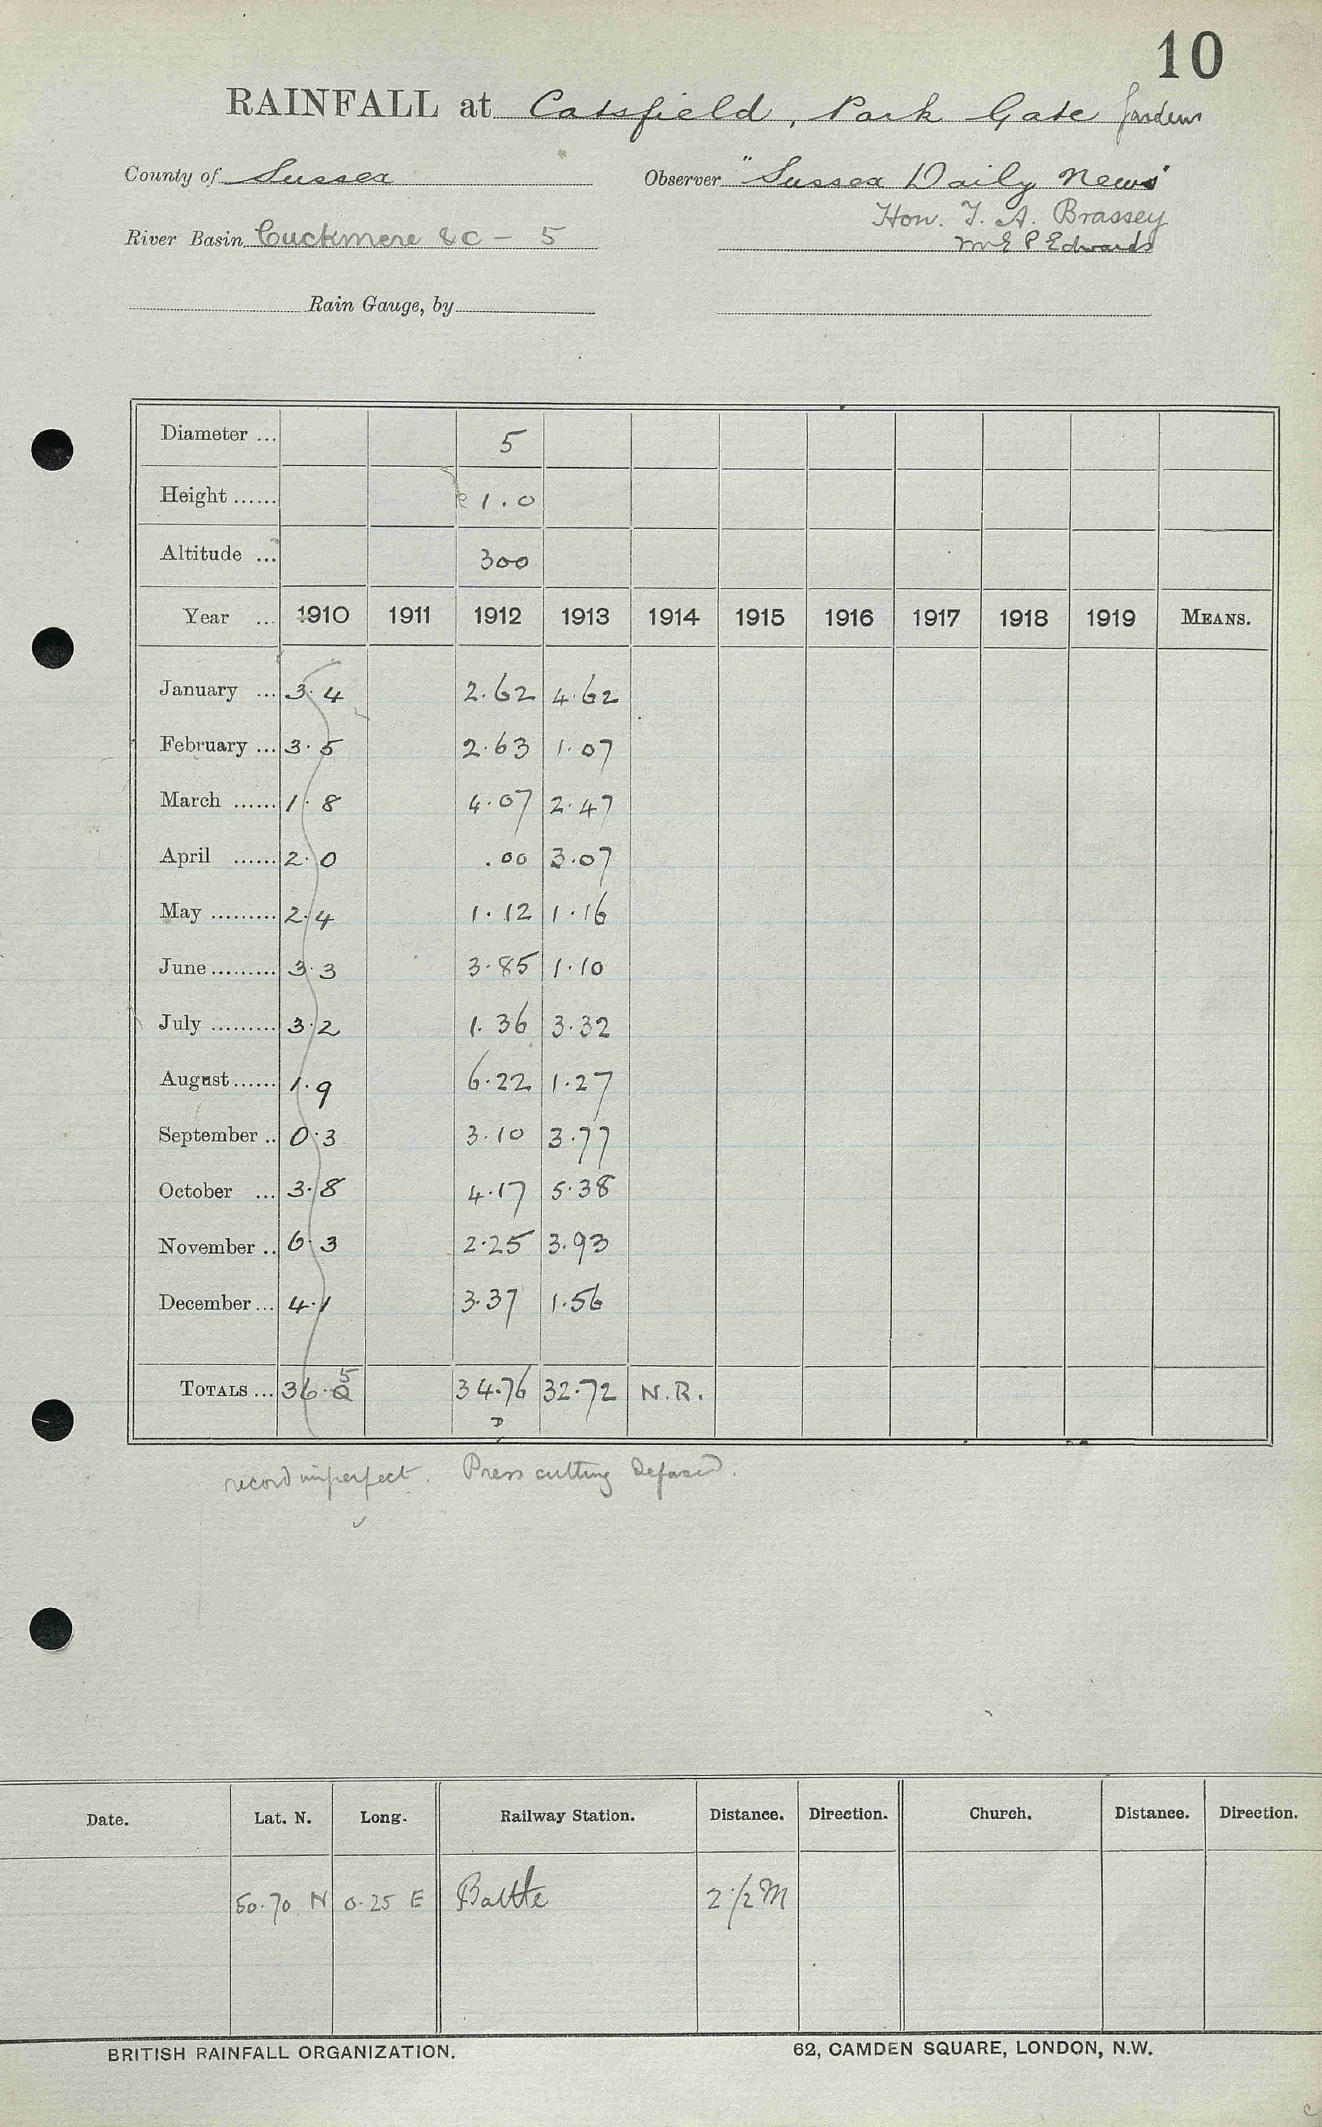 10
RAINFALL at Catsfield, Park Gate Gardens
County of Sussex Observer "Sussex Daily News"
Hon. T. A. Brassey
River Basin Cuckmere &c - 5
Mr E P Edwards
Rain Gauge, by
Diameter ... 5
Height ...... 1.0
Altitude ... 300
Year ... 1910 1911 1912 1913 1914 1915 1916 1917 1918 1919 MEANS.
January ... 3.4 2.62 4.62
February ... 3.5 2.63 1.07
March ...... 1.8 4.07 2.47
April ...... 2.0 .00 3.07
May ......... 2.4 1.12 1.16
June ......... 3.3 3.85 1.10
July ......... 3.2 1.36 3.32
August ...... 1.9 6.22 1.27
September .. 0.3 3.10 3.77
October ... 3.8 4.17 5.38
November .. 6.3 2.25 3.93
December ... 4.1 3.37 1.56
TOTALS ... 36.5 34.76 32.72 N.R.
D
record imperfect. Press cutting Defaced.
Date. Lat. N. Long. Railway Station. Distance. Direction. Church. Distance. Direction.
50.70 N 0.25 E Battle 2 1/2 M
BRITISH RAINFALL ORGANIZATION. 62, CAMDEN SQUARE, LONDON, N.W.